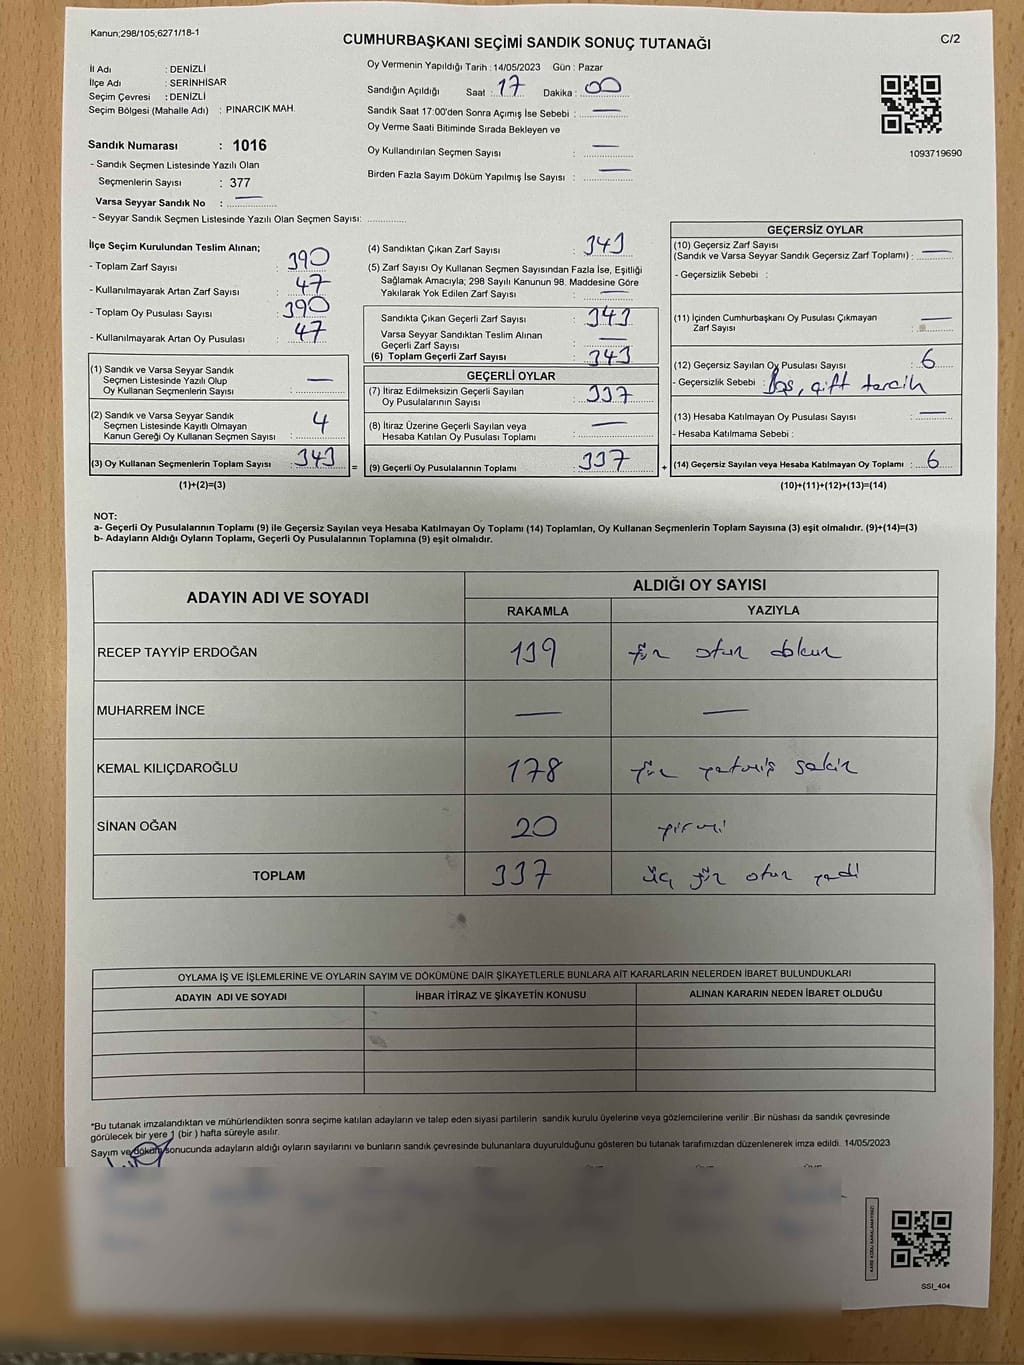 Kanun;298/105,6271/18-1
CUMHURBAŞKANI SEÇİMİ SANDIK SONUÇ TUTANAĞI
C/2
İl Adı : DENİZLİ
İlçe Adı : SERİNHİSAR
Seçim Çevresi : DENİZLİ
Seçim Bölgesi (Mahalle Adı) : PINARCIK MAH.
Sandık Numarası : 1016
- Sandık Seçmen Listesinde Yazılı Olan
Seçmenlerin Sayısı : 377
Varsa Seyyar Sandık No : —
- Seyyar Sandık Seçmen Listesinde Yazılı Olan Seçmen Sayısı: ..............
Oy Vermenin Yapıldığı Tarih : 14/05/2023 Gün : Pazar
Sandığın Açıldığı Saat : 17 Dakika : 00
Sandık Saat 17:00'den Sonra Açımış İse Sebebi : —
Oy Verme Saati Bitiminde Sırada Bekleyen ve
Oy Kullandırılan Seçmen Sayısı : —
Birden Fazla Sayım Döküm Yapılmış İse Sayısı : —
1093719690
İlçe Seçim Kurulundan Teslim Alınan;
- Toplam Zarf Sayısı : 390
- Kullanılmayarak Artan Zarf Sayısı : 47
- Toplam Oy Pusulası Sayısı : 390
- Kullanılmayarak Artan Oy Pusulası : 47
(1) Sandık ve Varsa Seyyar Sandık
Seçmen Listesinde Yazılı Olup
Oy Kullanan Seçmenlerin Sayısı : —
(2) Sandık ve Varsa Seyyar Sandık
Seçmen Listesinde Kayıtlı Olmayan
Kanun Gereği Oy Kullanan Seçmen Sayısı : 4
(3) Oy Kullanan Seçmenlerin Toplam Sayısı : 343
(1)+(2)=(3)
(4) Sandıktan Çıkan Zarf Sayısı : 343
(5) Zarf Sayısı Oy Kullanan Seçmen Sayısından Fazla İse, Eşitliği
Sağlamak Amacıyla; 298 Sayılı Kanunun 98. Maddesine Göre
Yakılarak Yok Edilen Zarf Sayısı : —
Sandıkta Çıkan Geçerli Zarf Sayısı : 343
Varsa Seyyar Sandıktan Teslim Alınan
Geçerli Zarf Sayısı : —
(6) Toplam Geçerli Zarf Sayısı : 343
GEÇERLİ OYLAR
(7) İtiraz Edilmeksizin Geçerli Sayılan
Oy Pusulalarının Sayısı : 337
(8) İtiraz Üzerine Geçerli Sayılan veya
Hesaba Katılan Oy Pusulası Toplamı : —
= (9) Geçerli Oy Pusulalarının Toplamı : 337
GEÇERSİZ OYLAR
(10) Geçersiz Zarf Sayısı
(Sandık ve Varsa Seyyar Sandık Geçersiz Zarf Toplamı) : —
- Geçersizlik Sebebi :
(11) İçinden Cumhurbaşkanı Oy Pusulası Çıkmayan
Zarf Sayısı : —
(12) Geçersiz Sayılan Oy Pusulası Sayısı : 6
- Geçersizlik Sebebi : Boş, çift tercih
(13) Hesaba Katılmayan Oy Pusulası Sayısı : —
- Hesaba Katılmama Sebebi :
+ (14) Geçersiz Sayılan veya Hesaba Katılmayan Oy Toplamı : 6
(10)+(11)+(12)+(13)=(14)
NOT:
a- Geçerli Oy Pusulalarının Toplamı (9) ile Geçersiz Sayılan veya Hesaba Katılmayan Oy Toplamı (14) Toplamları, Oy Kullanan Seçmenlerin Toplam Sayısına (3) eşit olmalıdır. (9)+(14)=(3)
b- Adayların Aldığı Oyların Toplamı, Geçerli Oy Pusulalarının Toplamına (9) eşit olmalıdır.
ADAYIN ADI VE SOYADI
ALDIĞI OY SAYISI
RAKAMLA YAZIYLA
RECEP TAYYİP ERDOĞAN 139 yüz otuz dokuz
MUHARREM İNCE — —
KEMAL KILIÇDAROĞLU 178 yüz yetmiş sekiz
SİNAN OĞAN 20 yirmi
TOPLAM 337 üç yüz otuz yedi
OYLAMA İŞ VE İŞLEMLERİNE VE OYLARIN SAYIM VE DÖKÜMÜNE DAİR ŞİKAYETLERLE BUNLARA AİT KARARLARIN NELERDEN İBARET BULUNDUKLARI
ADAYIN ADI VE SOYADI İHBAR İTİRAZ VE ŞİKAYETİN KONUSU ALINAN KARARIN NEDEN İBARET OLDUĞU
*Bu tutanak imzalandıktan ve mühürlendikten sonra seçime katılan adayların ve talep eden siyasi partilerin sandık kurulu üyelerine veya gözlemcilerine verilir .Bir nüshası da sandık çevresinde
görülecek bir yere 1 (bir ) hafta süreyle asılır.
Sayım ve döküm sonucunda adayların aldığı oyların sayılarını ve bunların sandık çevresinde bulunanlara duyurulduğunu gösteren bu tutanak tarafımızdan düzenlenerek imza edildi. 14/05/2023
SSI_404